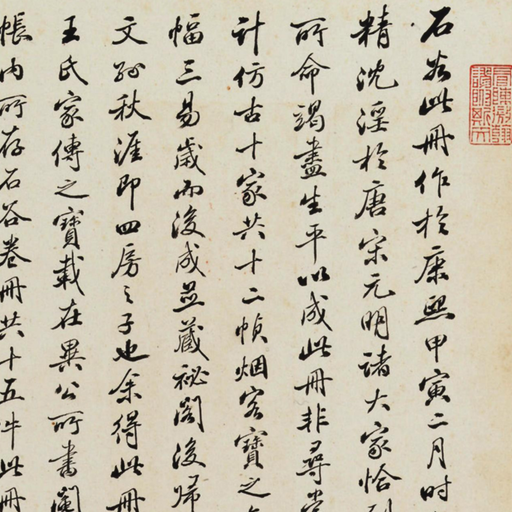 石谷此冊作於康熙甲寅二月時
精沈淫於唐宋元明諸大家恰
所命竭盡生平以成此冊非尋常
計仿古十家共十二幀烟客寶之
幅三易歲而後成並藏祕閣後歸
文孫秋涯即四房之子也余得此冊
王氏家傳之寶載在異公所書
帳内所存石谷卷冊共十五件此冊